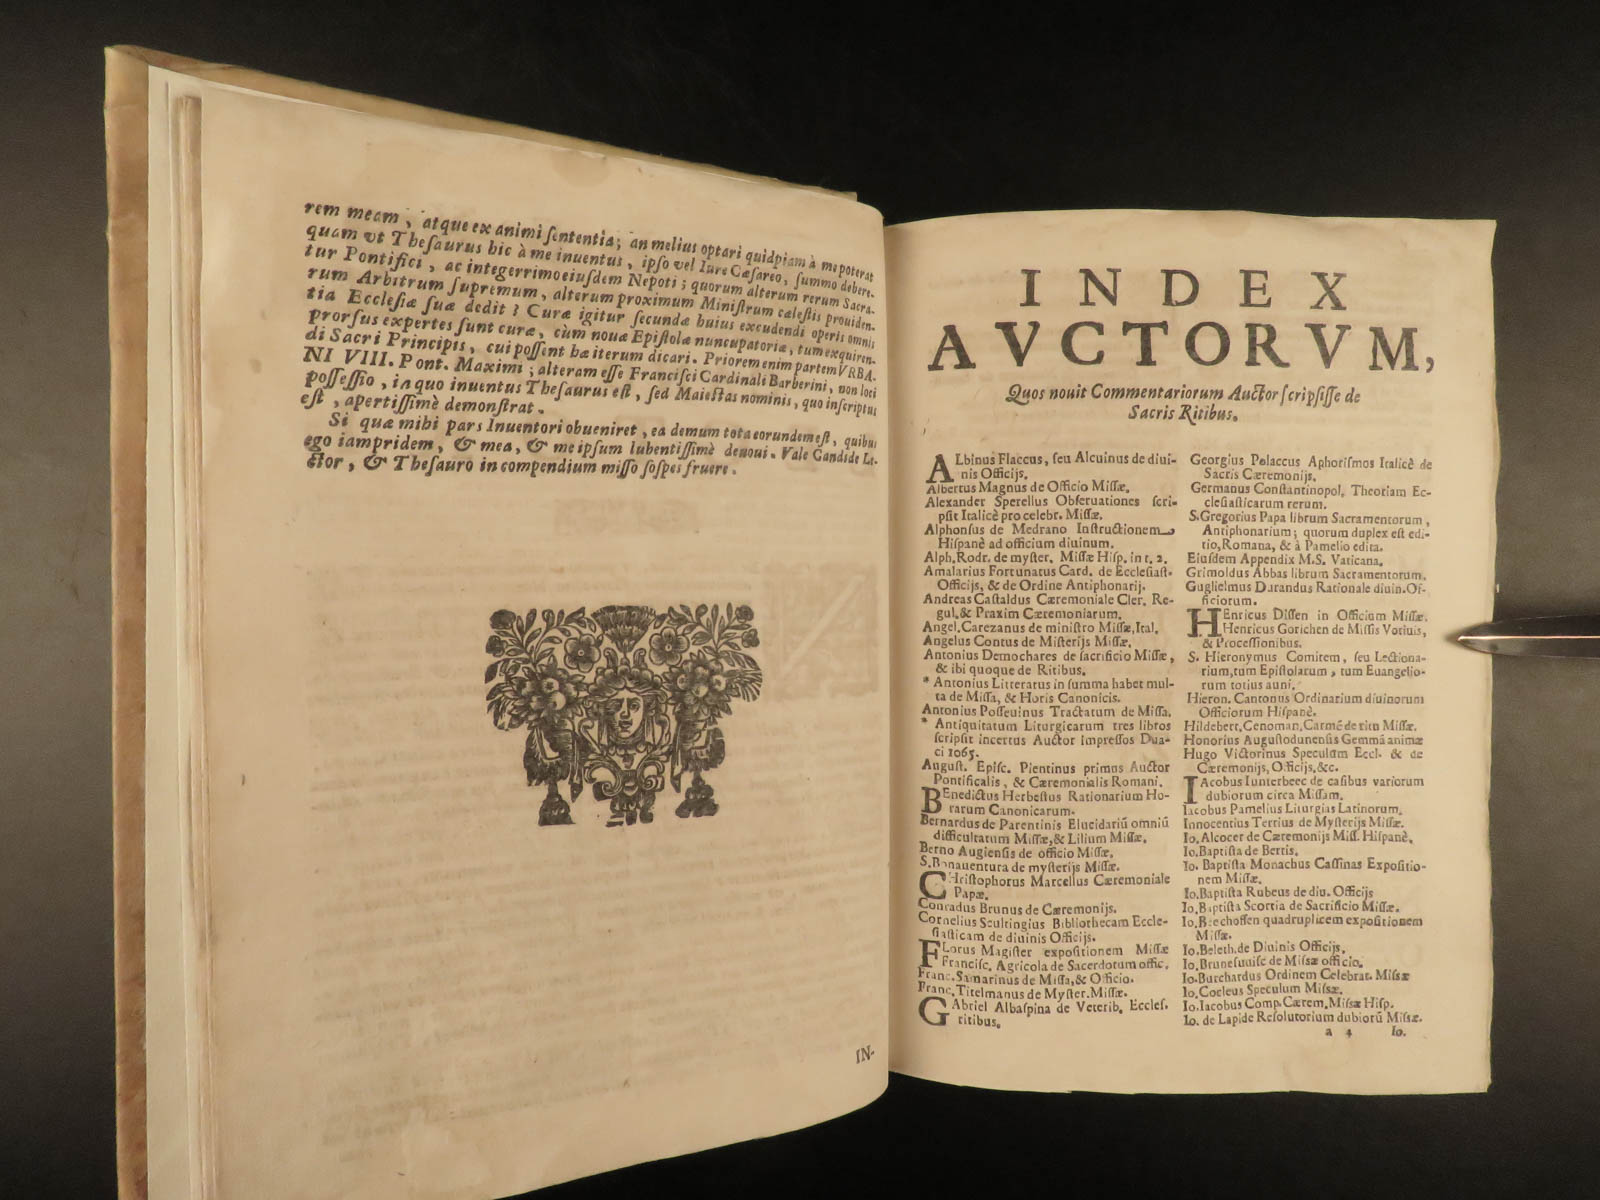 rem meam, atque ex animi sententia; an melius optari quidpiam à me poterat
quam vt Thesaurus hic à me inuentus, ipso vel Iure Cæsareo, summo debere-
tur Pontifici, ac integerrimo eiusdem Nepoti; quorum alterum rerum Sacra-
rum Arbitrum supremum, alterum proximum Ministrum cælestis prouiden-
tia Ecclesiæ suæ dedit? Curæ igitur secundæ huius excudendi operis omnis
prorsus expertes sunt curæ, cùm nouæ Epistolæ nuncupatoriæ, tum exquiren-
di Sacri Principis, cui possent hæ iterum dicari. Priorem enim partem VRBA-
NI VIII. Pont. Maximi; alteram esse Francisci Cardinali Barberini, non loci
possessio, in quo inuentus Thesaurus est, sed Maiestas nominis, quo inscriptus
est, apertissimè demonstrat.
Si quæ mihi pars Inuentori obueniret, ea demum tota eorundem est, quibus
ego iampridem, & mea, & me ipsum lubentissimè deuoui. Vale Candide Le-
ctor, & Thesauro in compendium misso sospes fruere.
IN-
INDEX
AVCTORVM,
Quos nouit Commentariorum Auctor scripsisse de
Sacris Ritibus.
ALbinus Flaccus, seu Alcuinus de diui-
nis Officijs.
Albertus Magnus de Officio Missæ.
Alexander Sperellus Obseruationes scri-
psit Italicè pro celebr. Missæ.
Alphonsus de Medrano Instructionem
Hispanè ad officium diuinum.
Alph. Rodr. de myster. Missæ Hisp. in t. 2.
Amalarius Fortunatus Card. de Ecclesiast.
Officijs, & de Ordine Antiphonarij.
Andreas Castaldus Cæremoniale Cler. Re-
gul. & Praxim Cæremoniarum.
Angel. Carezanus de ministro Missæ, Ital.
Angelus Contus de Misterijs Missæ.
Antonius Demochares de sacrificio Missæ,
& ibi quoque de Ritibus.
* Antonius Litteratus in summa habet mul-
ta de Missa, & Horis Canonicis.
Antonius Posseuinus Tractatum de Missa.
* Antiquitatum Liturgicarum tres libros
scripsit incertus Auctor impressos Dua-
ci 1065.
August. Episc. Pientinus primus Auctor
Pontificalis, & Cæremonialis Romani.
BEnedictus Herbestus Rationarium Ho-
rarum Canonicarum.
Bernardus de Parentinis Elucidariū omniū
difficultatum Missæ, & Lilium Missæ.
Berno Augiensis de officio Missæ.
S. Bonauentura de mysterijs Missæ.
CHristophorus Marcellus Cæremoniale
Papæ.
Conradus Brunus de Cæremonijs.
Cornelius Scultingius Bibliothecam Eccle-
siasticam de diuinis Officijs.
FLorus Magister expositionem Missæ
Francisc. Agricola de Sacerdotum offic.
Franc. Samarinus de Missa, & Officio.
Franc. Titelmanus de Myster. Missæ.
GAbriel Albaspina de Veterib. Eccles.
ritibus.
Georgius Polaccus Aphorismos Italicè de
Sacris Cæremonijs.
Germanus Constantinopol. Theoriam Ec-
clesiasticarum rerum.
S. Gregorius Papa librum Sacramentorum,
Antiphonarium; quorum duplex est edi-
tio, Romana, & à Pamelio edita.
Eiusdem Appendix M.S. Vaticana.
Grimoldus Abbas librum Sacramentorum.
Guglielmus Durandus Rationale diuin. Of-
ficiorum.
HEnricus Dissen in Officium Missæ.
Henricus Gorichen de Missis Votiuis,
& Processionibus.
S. Hieronymus Comitem, seu Lectiona-
rium, tum Epistolarum, tum Euangelio-
rum totius anni.
Hieron. Cantonus Ordinarium diuinorum
Officiorum Hispanè.
Hildebert. Cenoman. Carmē de ritu Missæ.
Honorius Augustodunensis Gemmā animæ
Hugo Victorinus Speculum Eccl. & de
Cæremonijs, Officijs, &c.
IAcobus Iunterbeec de casibus variorum
dubiorum circa Missam.
Iacobus Pamelius Liturgias Latinorum.
Innocentius Tertius de Mysterijs Missæ.
Io. Alcocer de Cæremonijs Miss. Hispanè.
Io. Baptista de Bertis.
Io. Baptista Monachus Cassinas Expositio-
nem Missæ.
Io. Baptista Rubeus de diu. Officijs
Io. Baptista Scortia de Sacrificio Missæ.
Io. Bechoffen quadruplicem expositionem
Missæ.
Io. Beleth. de Diuinis Officijs.
Io. Brunesuuisc de Missæ officio.
Io. Burchardus Ordinem Celebrat. Missæ
Io. Cocleus Speculum Missæ.
Io. Iacobus Comp. Cærem. Missæ Hisp.
Io. de Lapide Resolutorium dubiorū Missæ.
a 4 Io.